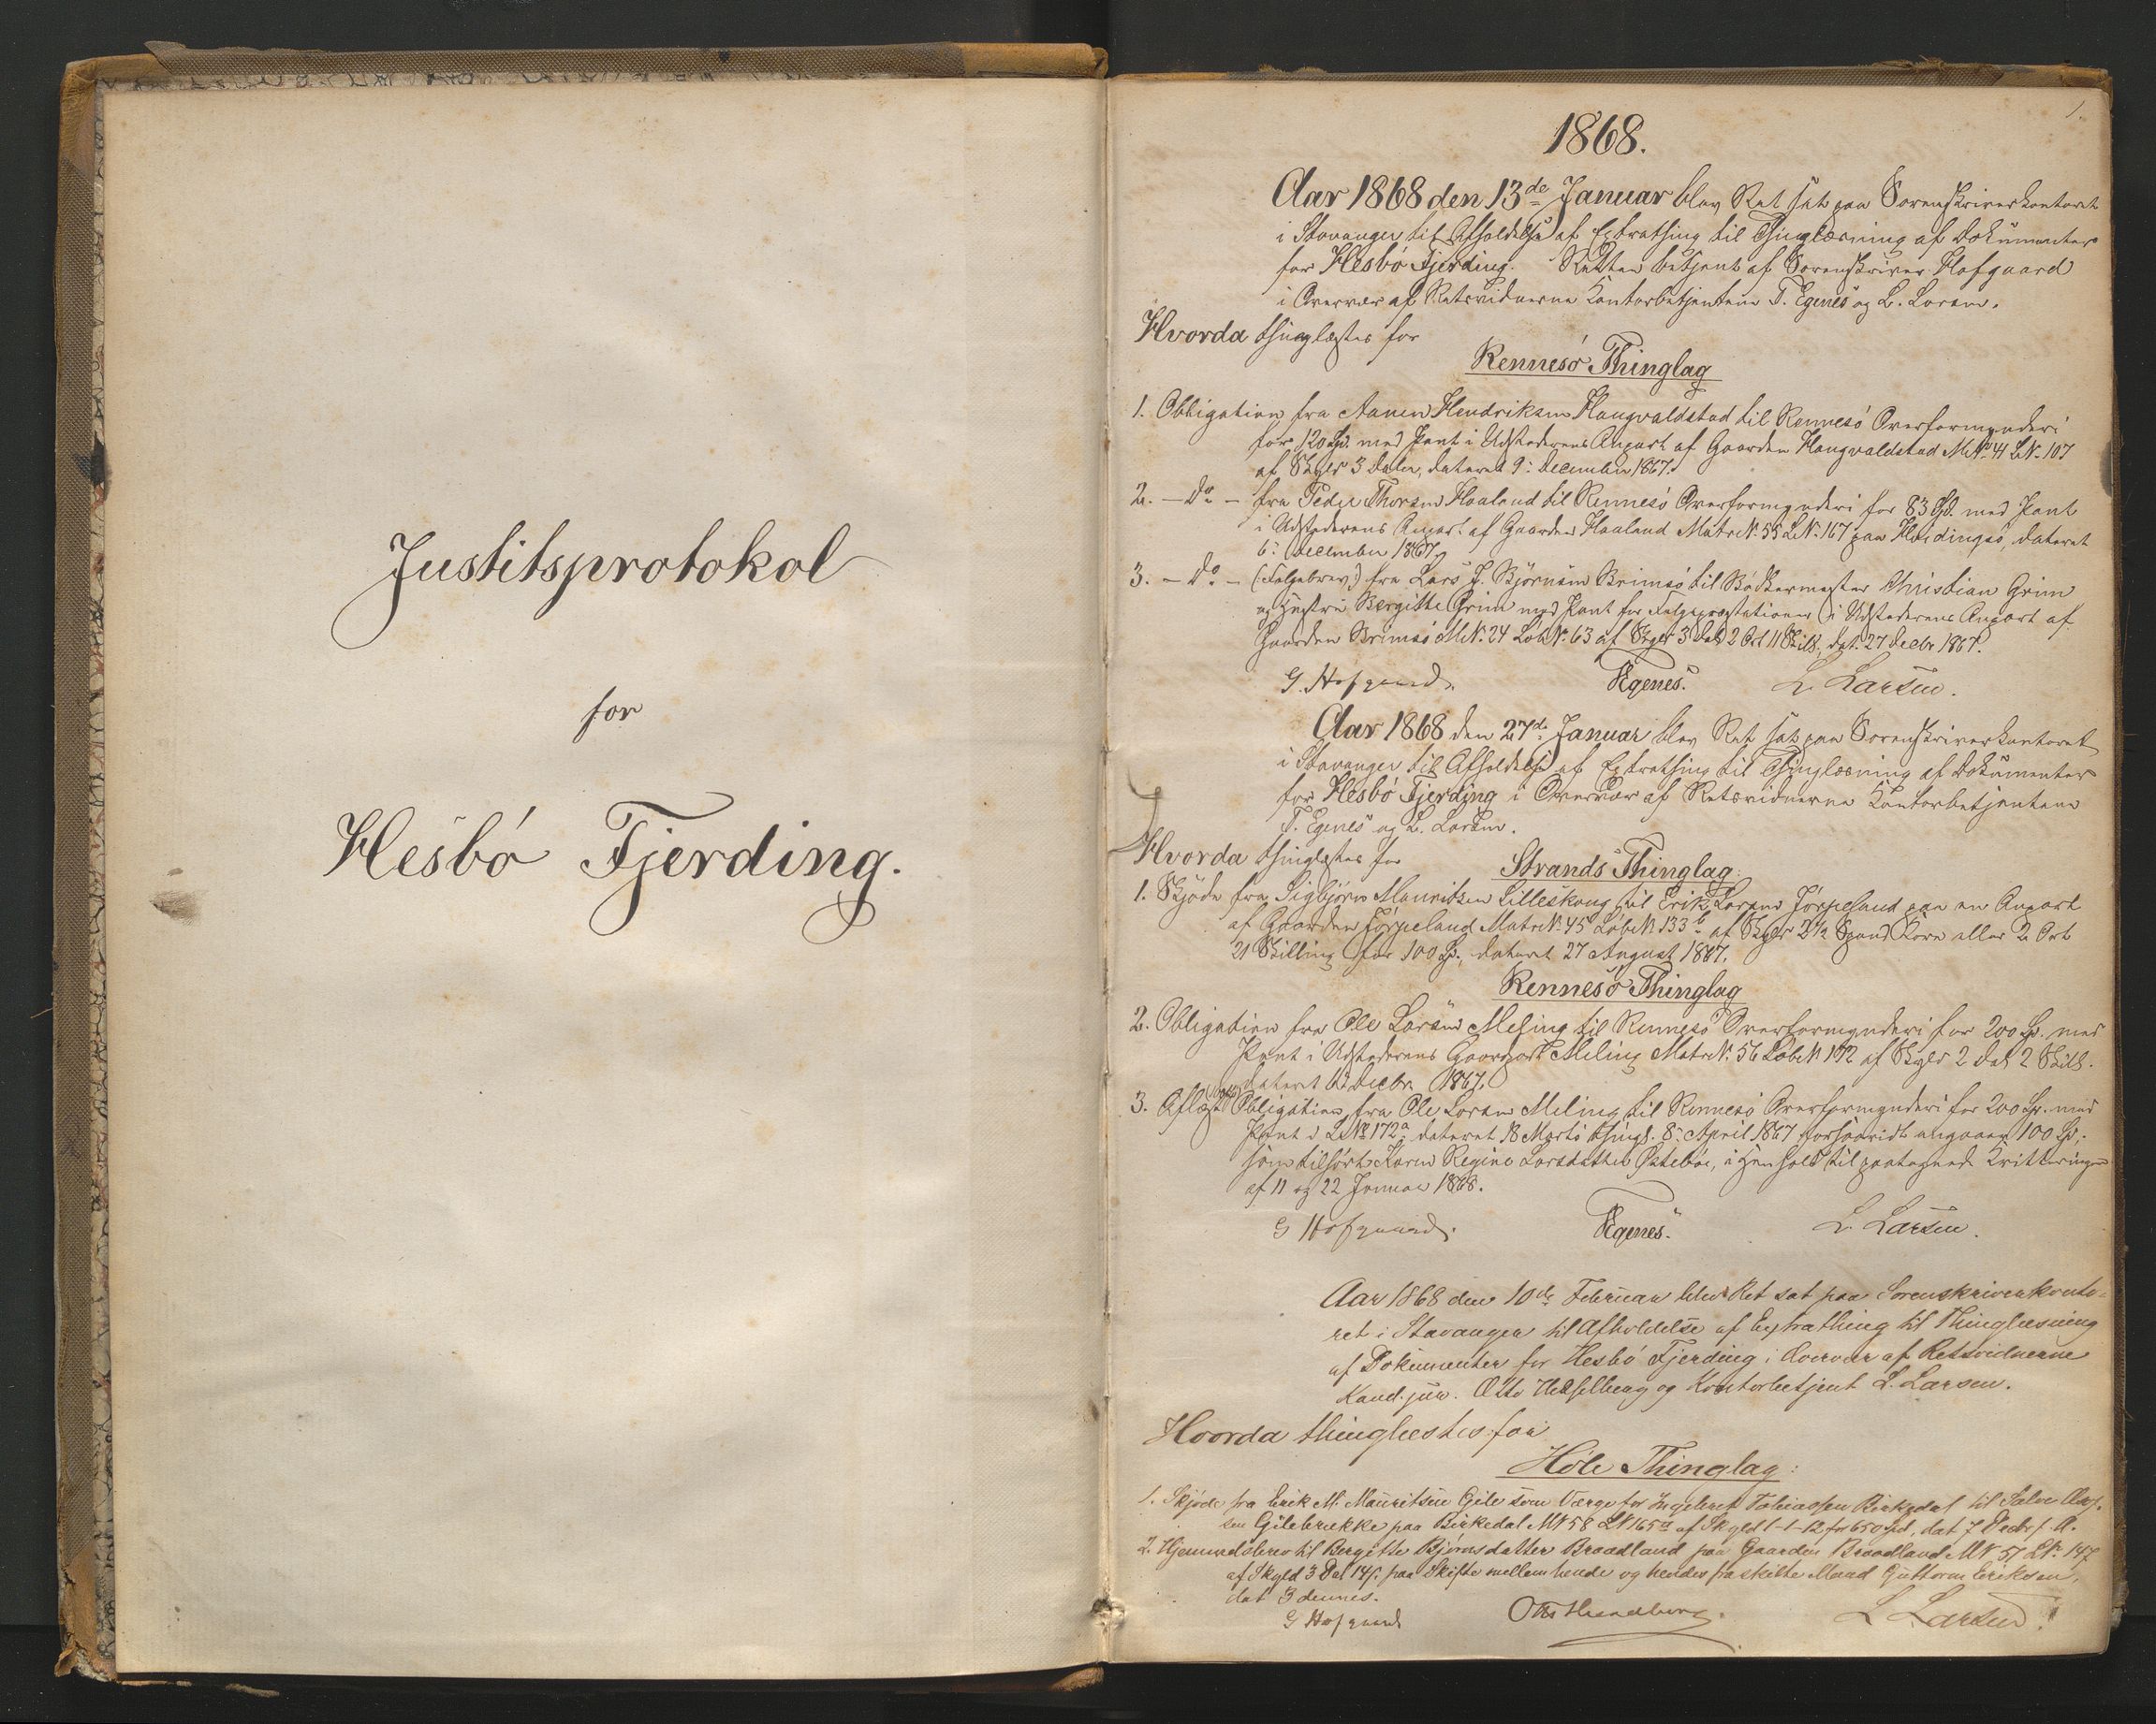 Justitsprotokol
for
Hesbö Fjerding.
1.
1868.
Aar 1868 den 13de Januar blev Ret sat paa Sorenskriverkontoret
i Stavanger til Afholdelse af Extrathing til Thinglæsning af Dokumenter
for Hesbö Fjerding. Retten betjent af Sorenskriver Hofgaard
i Overvær af Retsvidnerne Kontorbetjentene T. Egenes og L. Larsen.
Hvorda thinglæstes for
Rennesö Thinglag
1. Obligation fra Aanen Hendriksen Haugvaldstad til Rennesö Overformynderi
for 120 Spd. med Pant i Udstederens Anpart af Gaarden Haugvaldstad M.No. 41 L.No. 107
af Skyld 3 Daler, dateret 9. December 1867.
2. – Do – fra Peder Thorsen Haaland til Rennesö Overformynderi for 83 Spd. med Pant
i Udstederens Anpart af Gaarden Haaland Matr.No. 55 L.No. 167 paa, dateret
6. December 1867.
3. – Do – (Folgebrev) fra Lars J. Björnsen Brimsö til Bödkermester Christian Grim
og Hustru Bergitte Grim med Pant for Folgepræstationer i Udstederens Anpart af
Gaarden Brimsö M.No. 24 Löb.No. 63 af Skyld 3 Dal. 2 Ort 11 Skill., dat. 27 Decbr 1867.
G. Hofgaard. TEgenes. L. Larsen.
Aar 1868 den 27de Januar blev Ret sat paa Sorenskriverkontoret
i Stavanger til Afholdelse af Extrathing til Thinglæsning af Dokumenter
for Hesbö Fjerding i Overvær af Retsvidnerne Kontorbetjentene
T. Egenes og L. Larsen.
Hvorda thinglæstes for
Strands Thinglag.
1. Skjöde fra Sigbjörn Mauritsen Lilleskoug til Erik Larsen Jörpeland paa en Anpart
af Gaarden Jörpeland Matr.No. 45 Löb.No. 133b af Skyld 2½ Spand Korn eller 2 Ort
21 Skilling for 100 Sp., dateret 27 August 1867.
Rennesö Thinglag
2. Obligation fra Ole Larsen Meling til Rennesö Overformynderi for 200 Sp. med
Pant i Udstederens Gaardpart Meling Matr.No. 56 Löb.No. 172 af Skyld 2 Dal. 2 Skill.
dateret Decbr. 1867.
3. Aflæst Obligation fra Ole Larsen Meling til Rennesö Overformynderi for 200 Sp. med
Pant i L.No. 172a dateret 18 Marts thingl. 8. April 1867 forsaavidt angaaer 100 Sp.
som tilhört Karen Regine Larsdatter Östeböe, i Henhold til paategnede Kvitteringer
af 11 og 22 Januar 1868.
G Hofgaard. TEgenes. L. Larsen.
Aar 1868 den 10de Februar blev Ret sat paa Sorenskriverkonto-
ret i Stavanger til Afholdelse af Extrathing til Thinglæsning
af Dokumenter for Hesbö Fjerding i Overvær af Retsvidnerne
Kand. jur. Otto og Kontorbetjent L. Larsen.
Hvorda thinglæstes for
Höle Thinglag:
1. Skjöde fra Erik M. Mauritsen Gile som Værge for Ingeleret Tobiassen Birkedal til Salve
sen Gilebrække paa Birkedal MN 58 LN 165a af Skyld 1-1-12 for 650 Spd, dat 7 Decbr f. A.
2. Hjemmelsbrev til Bergitte Bjørnsdatter Braadland paa Gaarden Braadland MN 51 LN. 147
af Skyld 3 Dal 14 s. paa Skifte mellem hende og hendes fraskilte Mand Guttorm Eriksen,
dat 3 dennes.
G Hofgaard Otto L Larsen